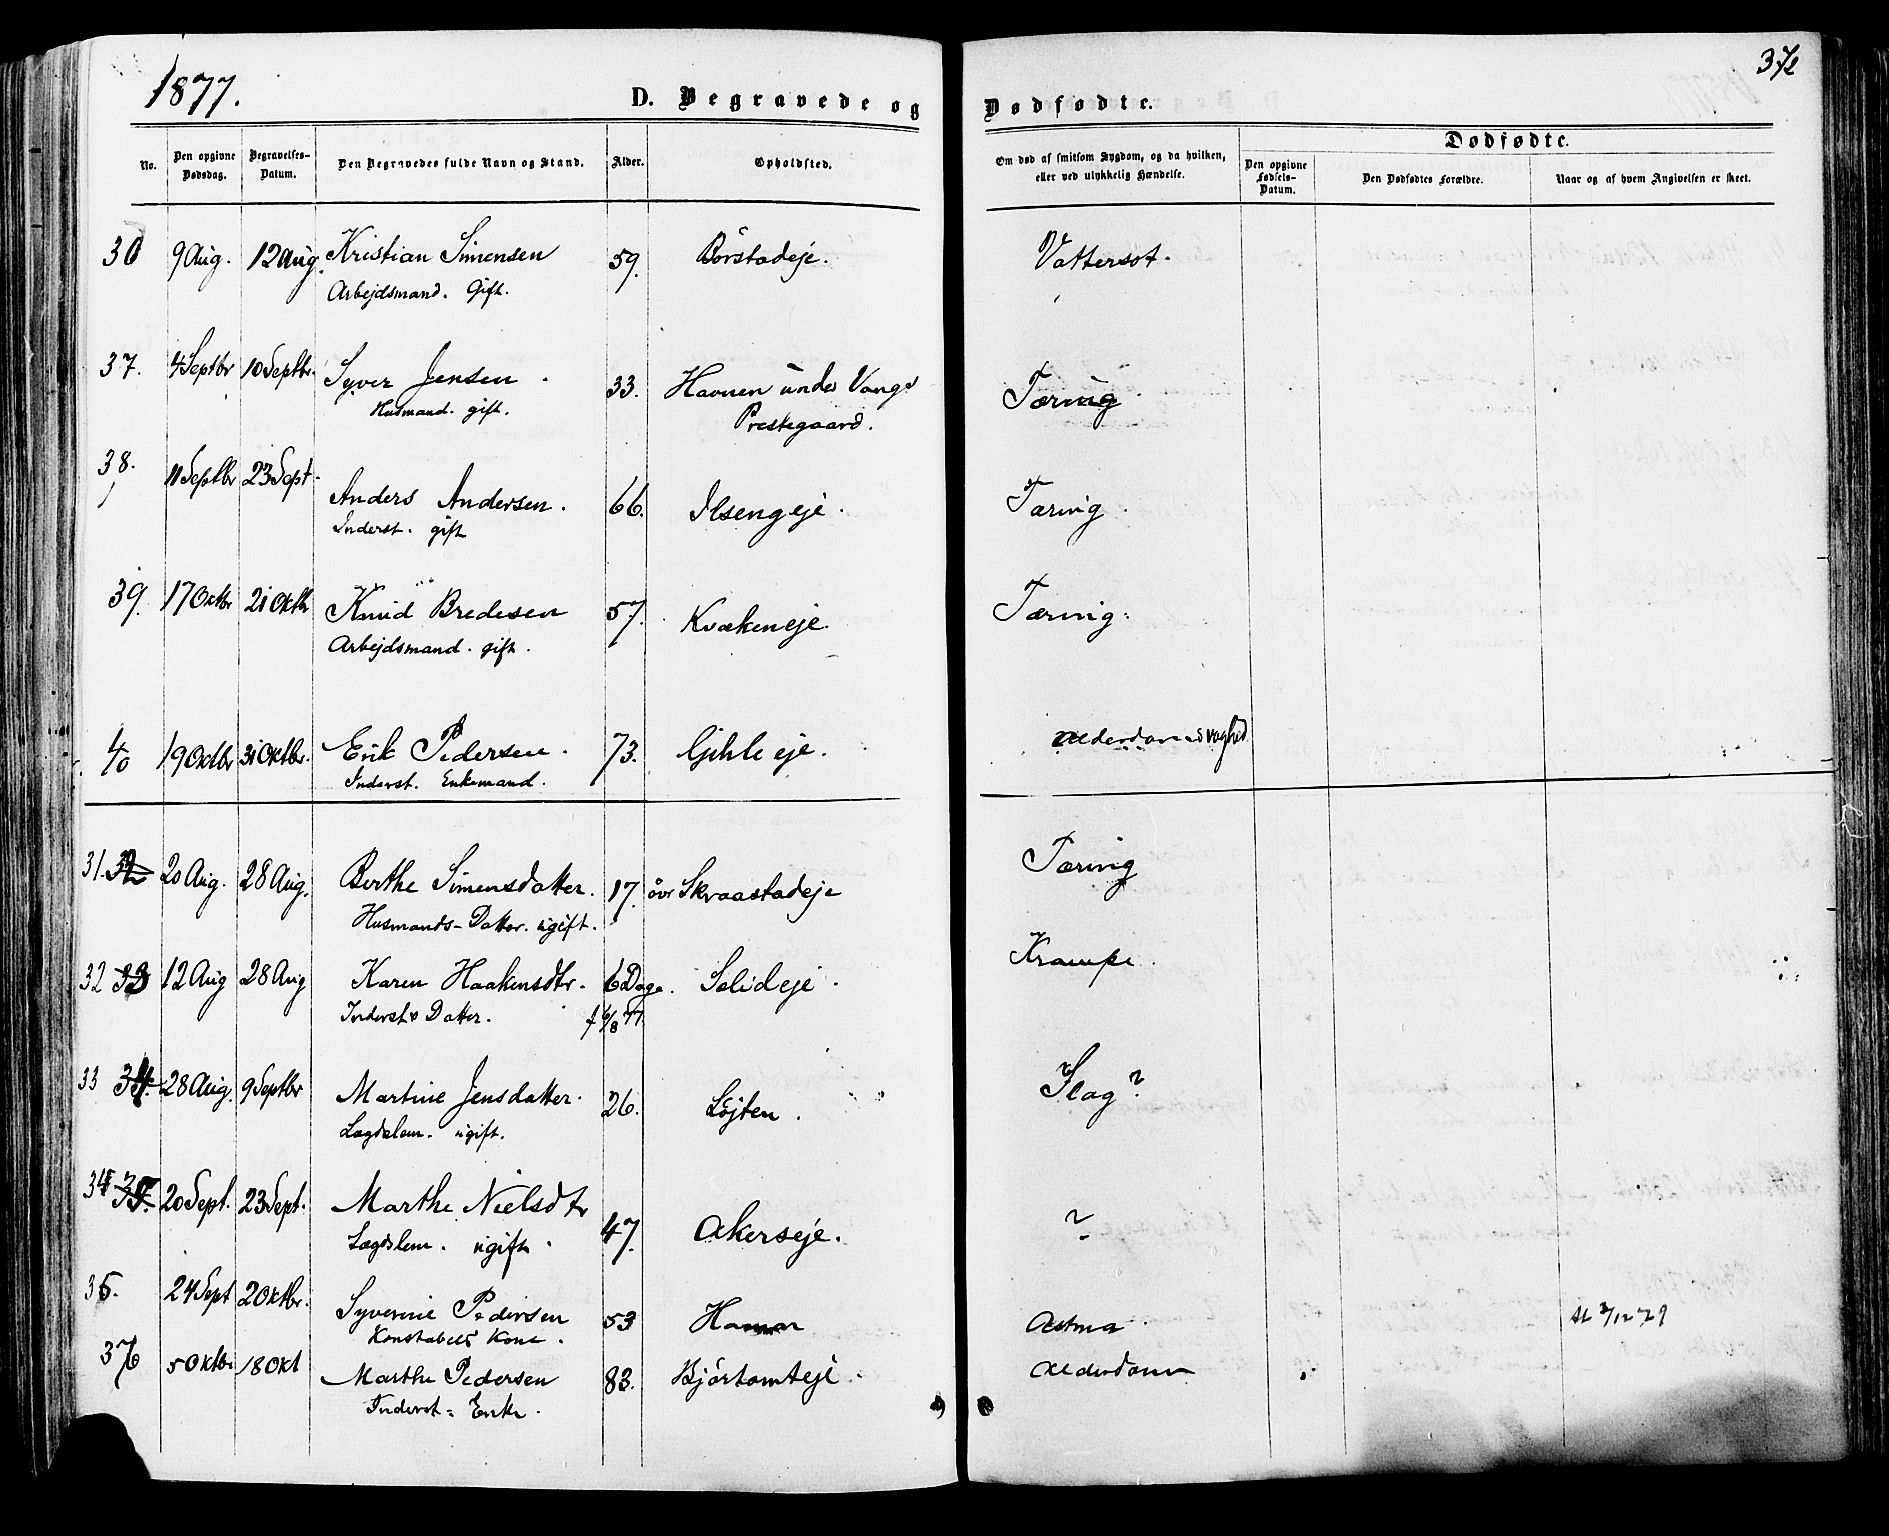 1877.
D. Begravede og
Dødfødte.
37
No.
Den opgivne Dødsdag.
Begravelses-Datum.
Den Begravedes fulde Navn og Stand.
Alder.
Opholdsted.
Om død af smitsom Sygdom, og da hvilken, eller ved ulykkelig Hændelse.
Dødfødte.
Den opgivne Fødsels-Datum.
Den Dødfødtes Forældre.
Naar og af hvem Angivelsen er skeet.
9 Aug. 12 Aug. Kristian Simensen 59. Børstadeje. Vattersot.
Arbejdsmand. Gift.
37. 4 Septbr 10 Septbr. Syver Jensen. 33. Havnen under Vangs Tæring.
Husmand. gift. Prestegaard.
38. 11 Septbr 23 Sept. Anders Andersen. 66. Ilsengeje. Tæring.
Inderst. gift
39. 17 Oktbr 21 Oktb Knud Bredesen 57. Kvækeneje. Tæring.
Arbejdsmand. gift.
40 19 Oktbr 31 Oktbr. Erik Pedersen. 73. Gihle eje. Alderdomssvaghed
Inderst. Enkemand.
31. 32 20 Aug. 28 Aug. Berthe Simensdatter. 17. övr Skraastadeje Tæring
Husmands-Datter. ugift.
32 33 12 Aug 28 Aug Karen Haakensdtr. 6 Dage. Solideje. Krampe.
Inderst Datter. f 6/8 77.
33 34. 28 Aug. 9 Septbr Martine Jensdatter. 26. Löjten. Slag?
Lægdslem. ugift.
34 35. 20 Sept. 23 Sept. Marthe Nielsdtr 47. Akerseje. ?
Lægdslem. ugift.
35. 24 Sept 2 Oktbr. Syverine Pedersen 53 Hamar Astma
Konstabels Kone.
36 5 Oktbr 18 Okt Marthe Pedersen 83. Bjørtomteje. Alderdom
Inderst = Enke.